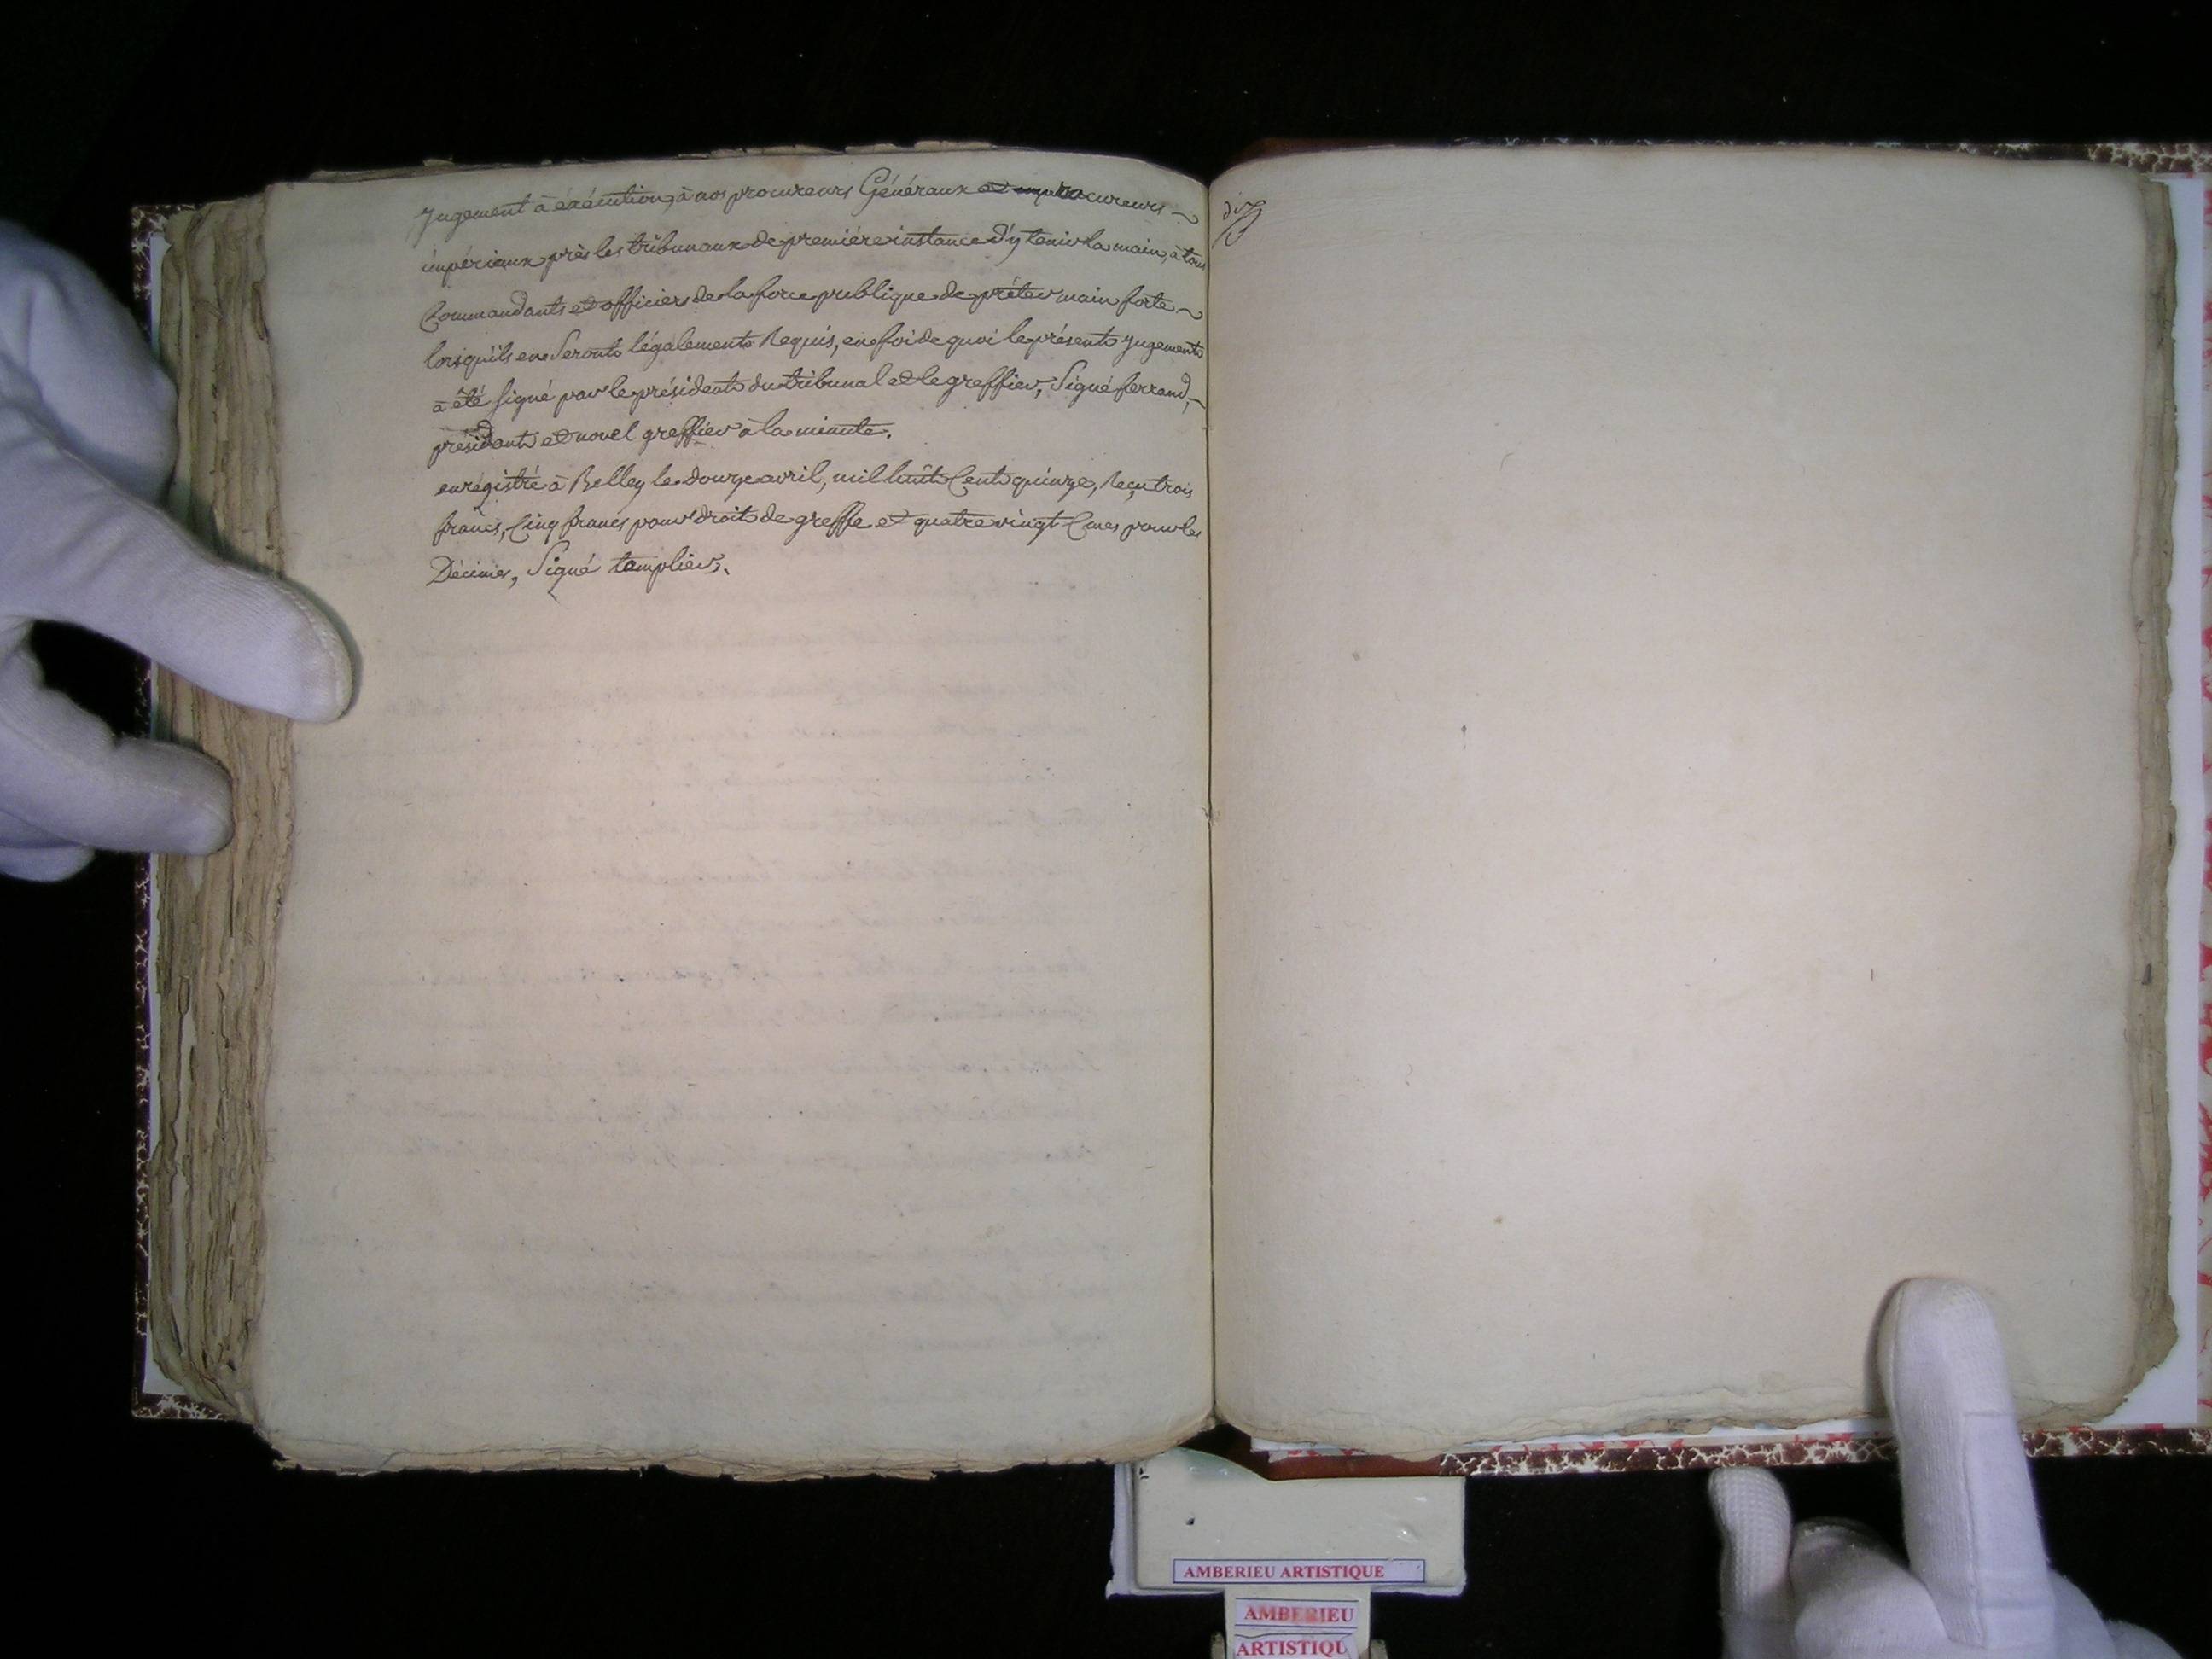 jugement à éxécution, à nos procureurs Généraux et procureurs
impériaux près les tribunaux de premiére instance d'y tenir la main, à tous
Commandants et officiers de la force publique de préter main forte
lorsqu'ils en Seront légalement Requis, en foi de quoi le présent jugement
à été Signé par le président du tribunal et le greffier, Signé ferrand,
président et novel greffier à la minute.
enrégistré à Belley le douze avril, mil huit Cent quinze, Reçu trois
francs, Cinq francs pour droit de greffe et quatre vingt Cmes pour les
Décimes, Signé templier.
AMBERIEU ARTISTIQUE
AMBERIEU
ARTISTIQU